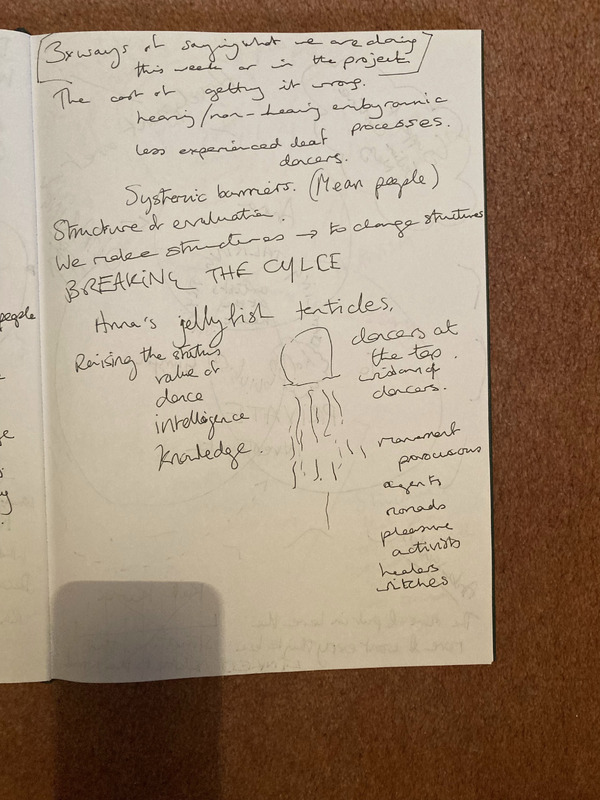 3x ways of saying what we are doing
this week or in the project
The cost of getting it wrong.
hearing/non-hearing embyronic
processes.
less experienced deaf
dancers.
Systemic barriers. (Mean people)
Structure of evaluation.
We make structures → to change structures
BREAKING THE CYLCE
Anna's jellyfish tenticles.
Raising the status
value of
dance
intelligence
knowledge.
dancers at
the top.
wisdom of
dancers.
movement
agents
nomads
pleasure
activists
healers
witches
people